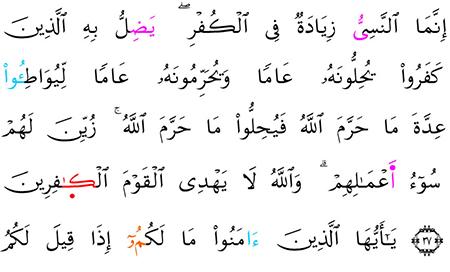 إِنَّمَا ٱلنَّسِىُّ زِيَادَةٌ فِى ٱلْكُفْرِ ۖ يَضِلُّ بِهِ ٱلَّذِينَ
كَفَرُواْ يُحِلُّونَهُۥ عَامًا وَيُحَرِّمُونَهُۥ عَامًا لِّيُوَاطِـُٔواْ
عِدَّةَ مَا حَرَّمَ ٱللَّهُ فَيُحِلُّواْ مَا حَرَّمَ ٱللَّهُ ۚ زُيِّنَ لَهُمْ
سُوٓءُ أَعْمَـٰلِهِمْ ۗ وَٱللَّهُ لَا يَهْدِى ٱلْقَوْمَ ٱلْكَـٰفِرِينَ
﴿٣٧﴾ يَـٰٓأَيُّهَا ٱلَّذِينَ ءَامَنُواْ مَا لَكُمُۥٓ إِذَا قِيلَ لَكُمُ